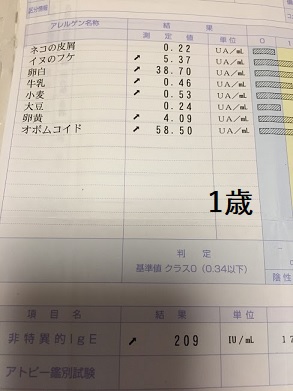 アレルゲン名称 結果
測定値 単位 0 1
ネコの皮屑 0.22 UA/mL
イヌのフケ ➚ 5.37 UA/mL
卵白 ➚ 38.70 UA/mL
牛乳 ➚ 0.46 UA/mL
小麦 ➚ 0.53 UA/mL
大豆 0.24 UA/mL
卵黄 ➚ 4.09 UA/mL
オボムコイド ➚ 58.50 UA/mL
1歳
判定
基準値 クラス0 (0.34以下)
陰性
項目名 結果 単位
非特異的IgE ➚ 209 IU/mL 17
アトピー鑑別試験